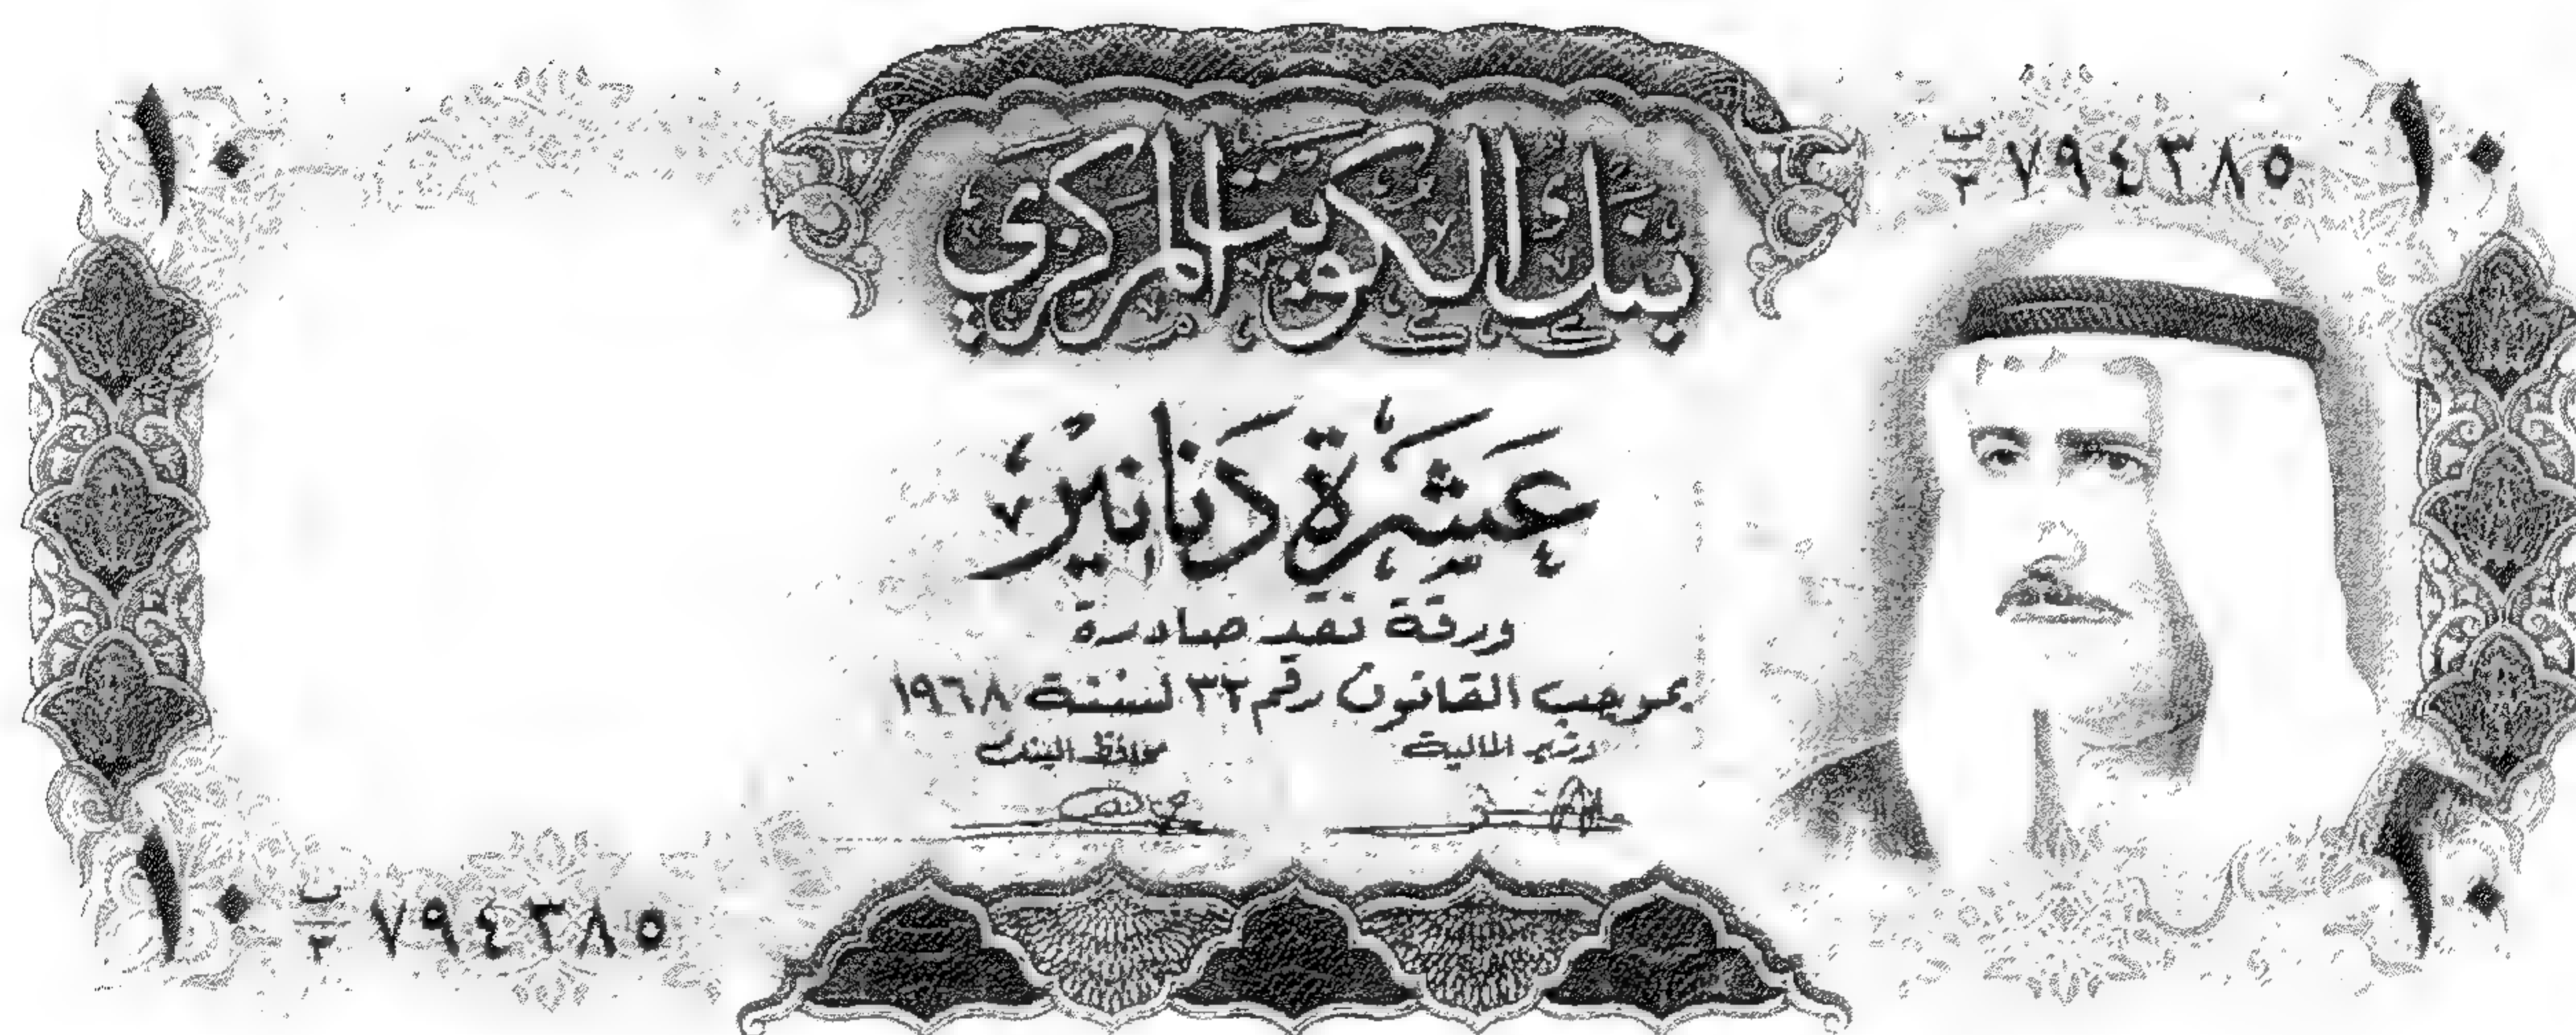 ١٠
ب/٢ ٧٩٤٣٨٥
١٠
بنك الكويت المركزي
عَشَرَة دَنَانيْر
ورقة نقد صادرة
بموجب القانون رقم ٣٢ لسنة ١٩٦٨
وزير المالية
محافظ البنك
١٠
ب/٢ ٧٩٤٣٨٥
١٠